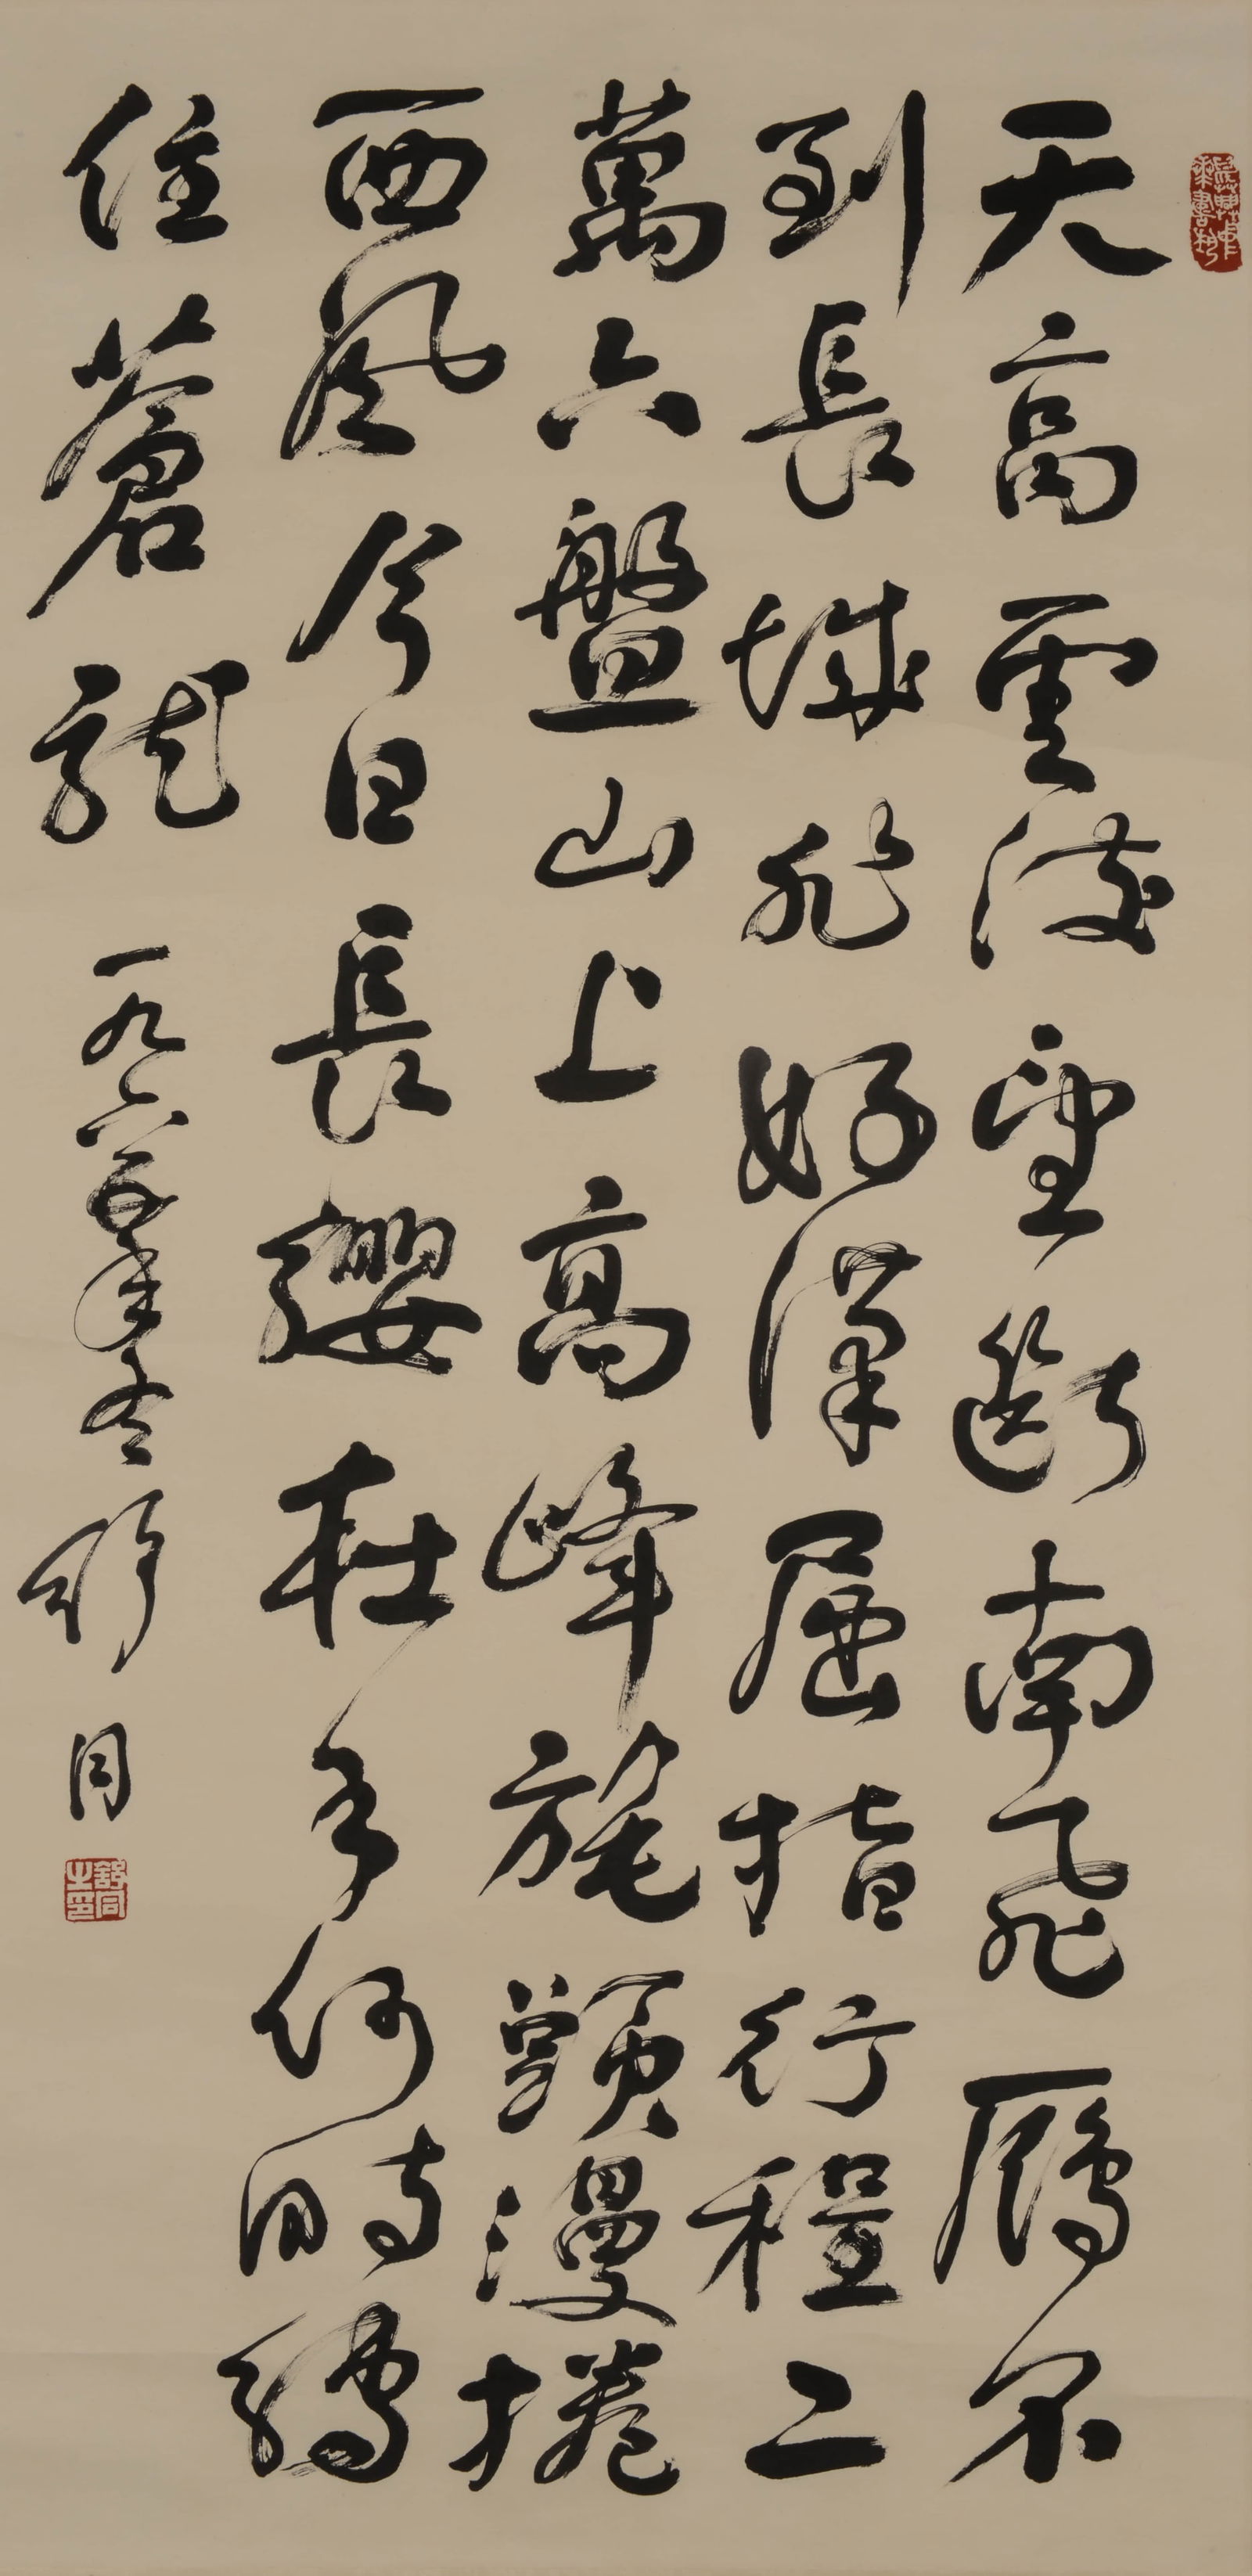 天高雲淡望斷南飛鴈不
到長城非好漢屈指行程二
萬六盤山上高峰旄頭漫捲
西風今日長纓在手何時縛
住蒼龍 一九六五年冬 舒同
舒同之印